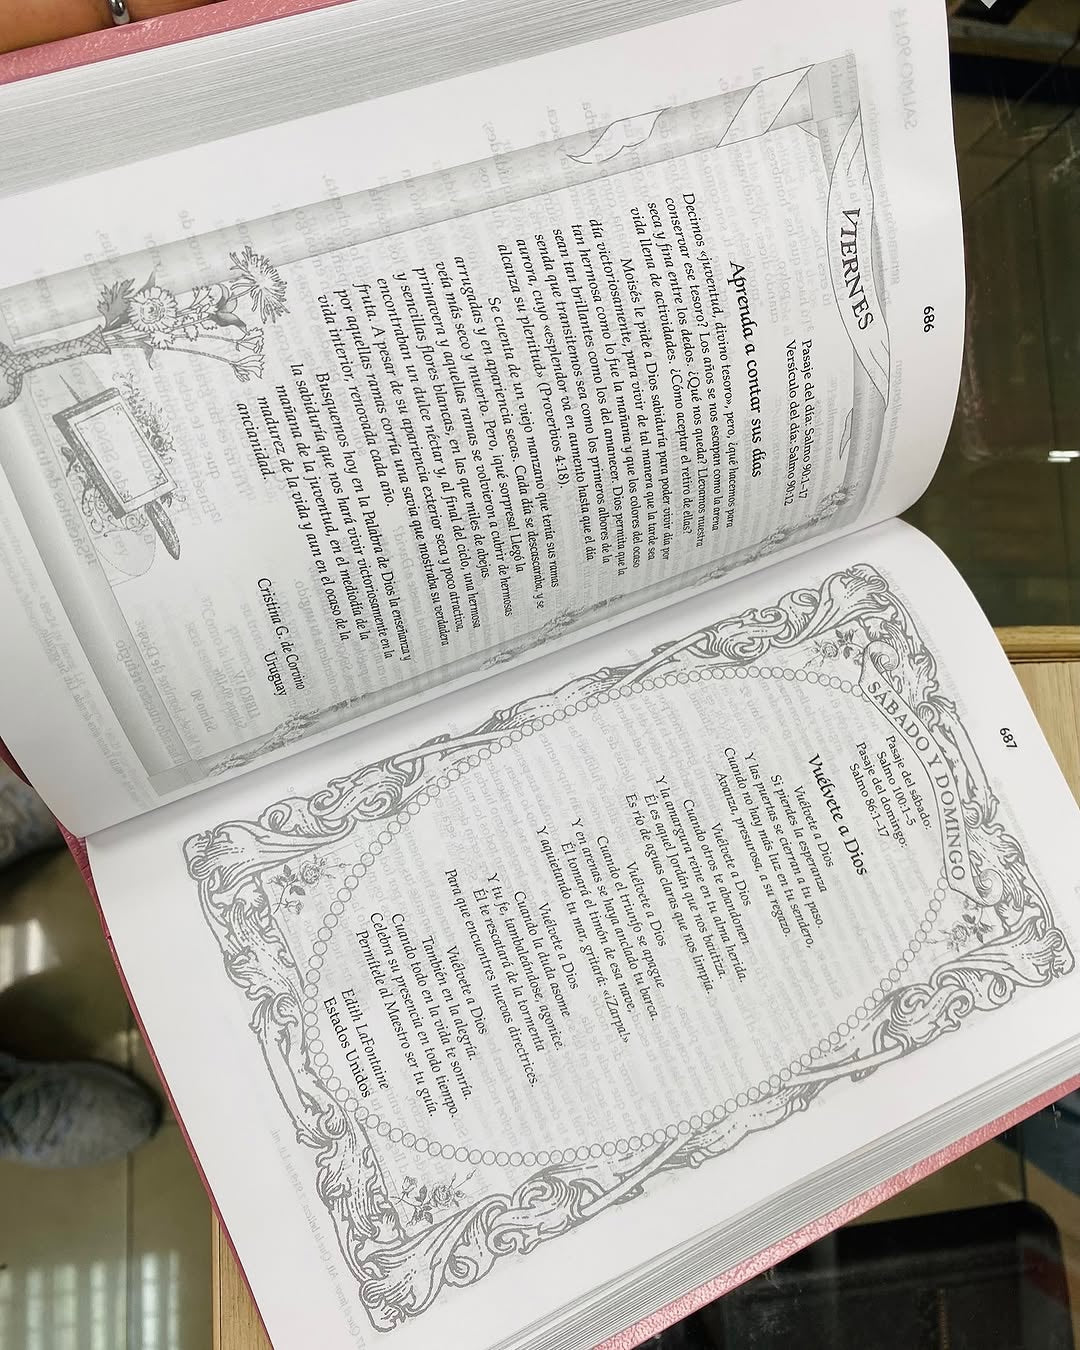 686
VIERNES
Pasaje del día: Salmo 90:1-17
Versículo del día: Salmo 90:12
Aprenda a contar sus días
Decimos «juventud, divino tesoro», pero, ¿qué hacemos para
conservar ese tesoro? Los años se nos escapan como la arena
seca y fina entre los dedos. ¿Qué nos queda? Llevamos nuestra
vida llena de actividades. ¿Cómo aceptar el retiro de ellas?
Moisés le pide a Dios sabiduría para poder vivir día por
día victoriosamente, para vivir de tal manera que la tarde sea
tan hermosa como lo fue la mañana y que los colores del ocaso
sean tan brillantes como los del amanecer. Dios permita que la
senda que transitemos sea como los primeros albores de la
aurora, cuyo «esplendor va en aumento hasta que el día
alcanza su plenitud» (Proverbios 4:18).
Se cuenta de un viejo manzano que tenía sus ramas
arrugadas y en apariencia secas. Cada día se descascaraba, y se
veía más seco y muerto. Pero, ¡qué sorpresa! Llegó la
primavera y aquellas ramas se volvieron a cubrir de hermosas
y sencillas flores blancas, en las que miles de abejas
encontraban un dulce néctar y, al final del ciclo, una hermosa
fruta. A pesar de su apariencia exterior seca y poco atractiva,
por aquellas ramas corría una savia que mostraba su verdadera
vida interior, renovada cada año.
Busquemos hoy en la Palabra de Dios la enseñanza y
la sabiduría que nos hará vivir victoriosamente en la
mañana de la juventud, en el mediodía de la
madurez de la vida y aun en el ocaso de la
ancianidad.
Cristina G. de Corvino
Uruguay
687
SÁBADO Y DOMINGO
Pasaje del sábado:
Salmo 100:1-5
Pasaje del domingo:
Salmo 86:1-17
Vuélvete a Dios
Vuélvete a Dios
Si pierdes la esperanza
Y las puertas se cierran a tu paso.
Cuando no hay más luz en tu sendero,
Avanza, presurosa, a su regazo.
Vuélvete a Dios
Cuando otros te abandonen
Y la amargura reine en tu alma herida.
Él es aquel Jordán que nos bautiza
Es río de aguas claras que nos limpia.
Vuélvete a Dios
Cuando el triunfo se apague
Y en arenas se haya anclado tu barca.
Él tomará el timón de esa nave,
Y aquietando tu mar, gritará: «¡Zarpa!»
Vuélvete a Dios
Cuando la duda asome
Y tu fe, tambaleándose, agonice.
Él te rescatará de la tormenta
Para que encuentres nuevas directrices.
Vuélvete a Dios
También en la alegría.
Cuando todo en la vida te sonría.
Celebra su presencia en todo tiempo.
Permítele al Maestro ser tu guía.
Edith LaFontaine
Estados Unidos